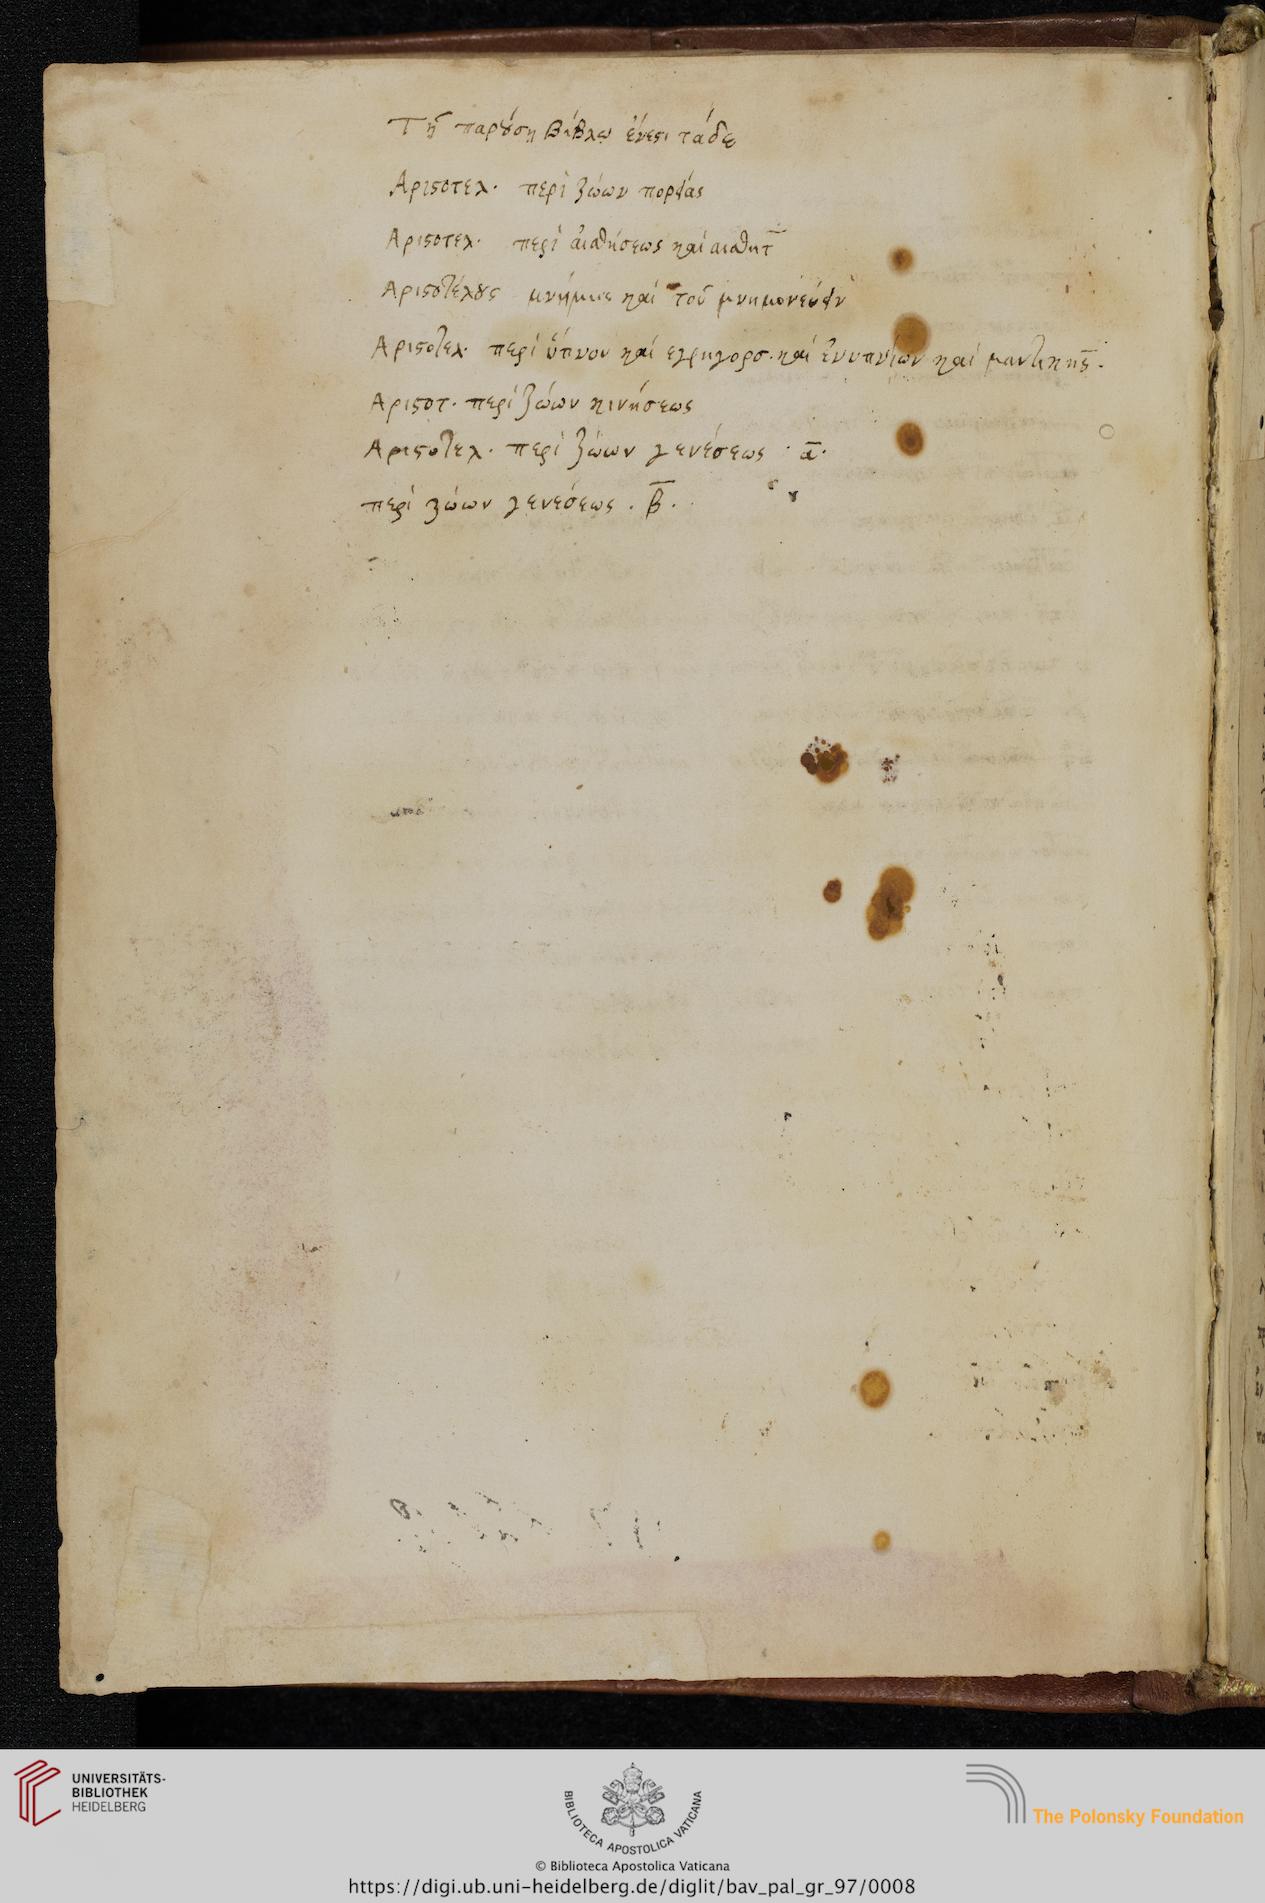 Τῇ παρούση βίβλω ἔνεστι τάδε
Αριστοτελ. περὶ ζώων πορείας
Αριστοτελ. περὶ αἰσθήσεως καὶ αισθητ
Αριστοτέλους μνήμης καὶ τοῦ μνημονεύειν
Αριστοτελ. περὶ ὕπνου καὶ εγρηγορσ. καὶ ἐνυπνίων καὶ μαντικῆς.
Αριστοτ. περὶ ζώων κινήσεως
Αριστοτελ. περὶ ζώων γενέσεως . α.
περὶ ζώων γενεσεως . β.
UNIVERSITÄTS-
BIBLIOTHEK
HEIDELBERG
BIBLIOTECA APOSTOLICA VATICANA
The Polonsky Foundation
© Biblioteca Apostolica Vaticana
https://digi.ub.uni-heidelberg.de/diglit/bav_pal_gr_97/0008